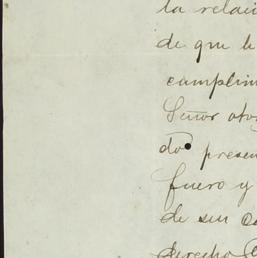 la relaci
de que le
cumplim
Señor oto
do presen
fuero y
de su
derecho